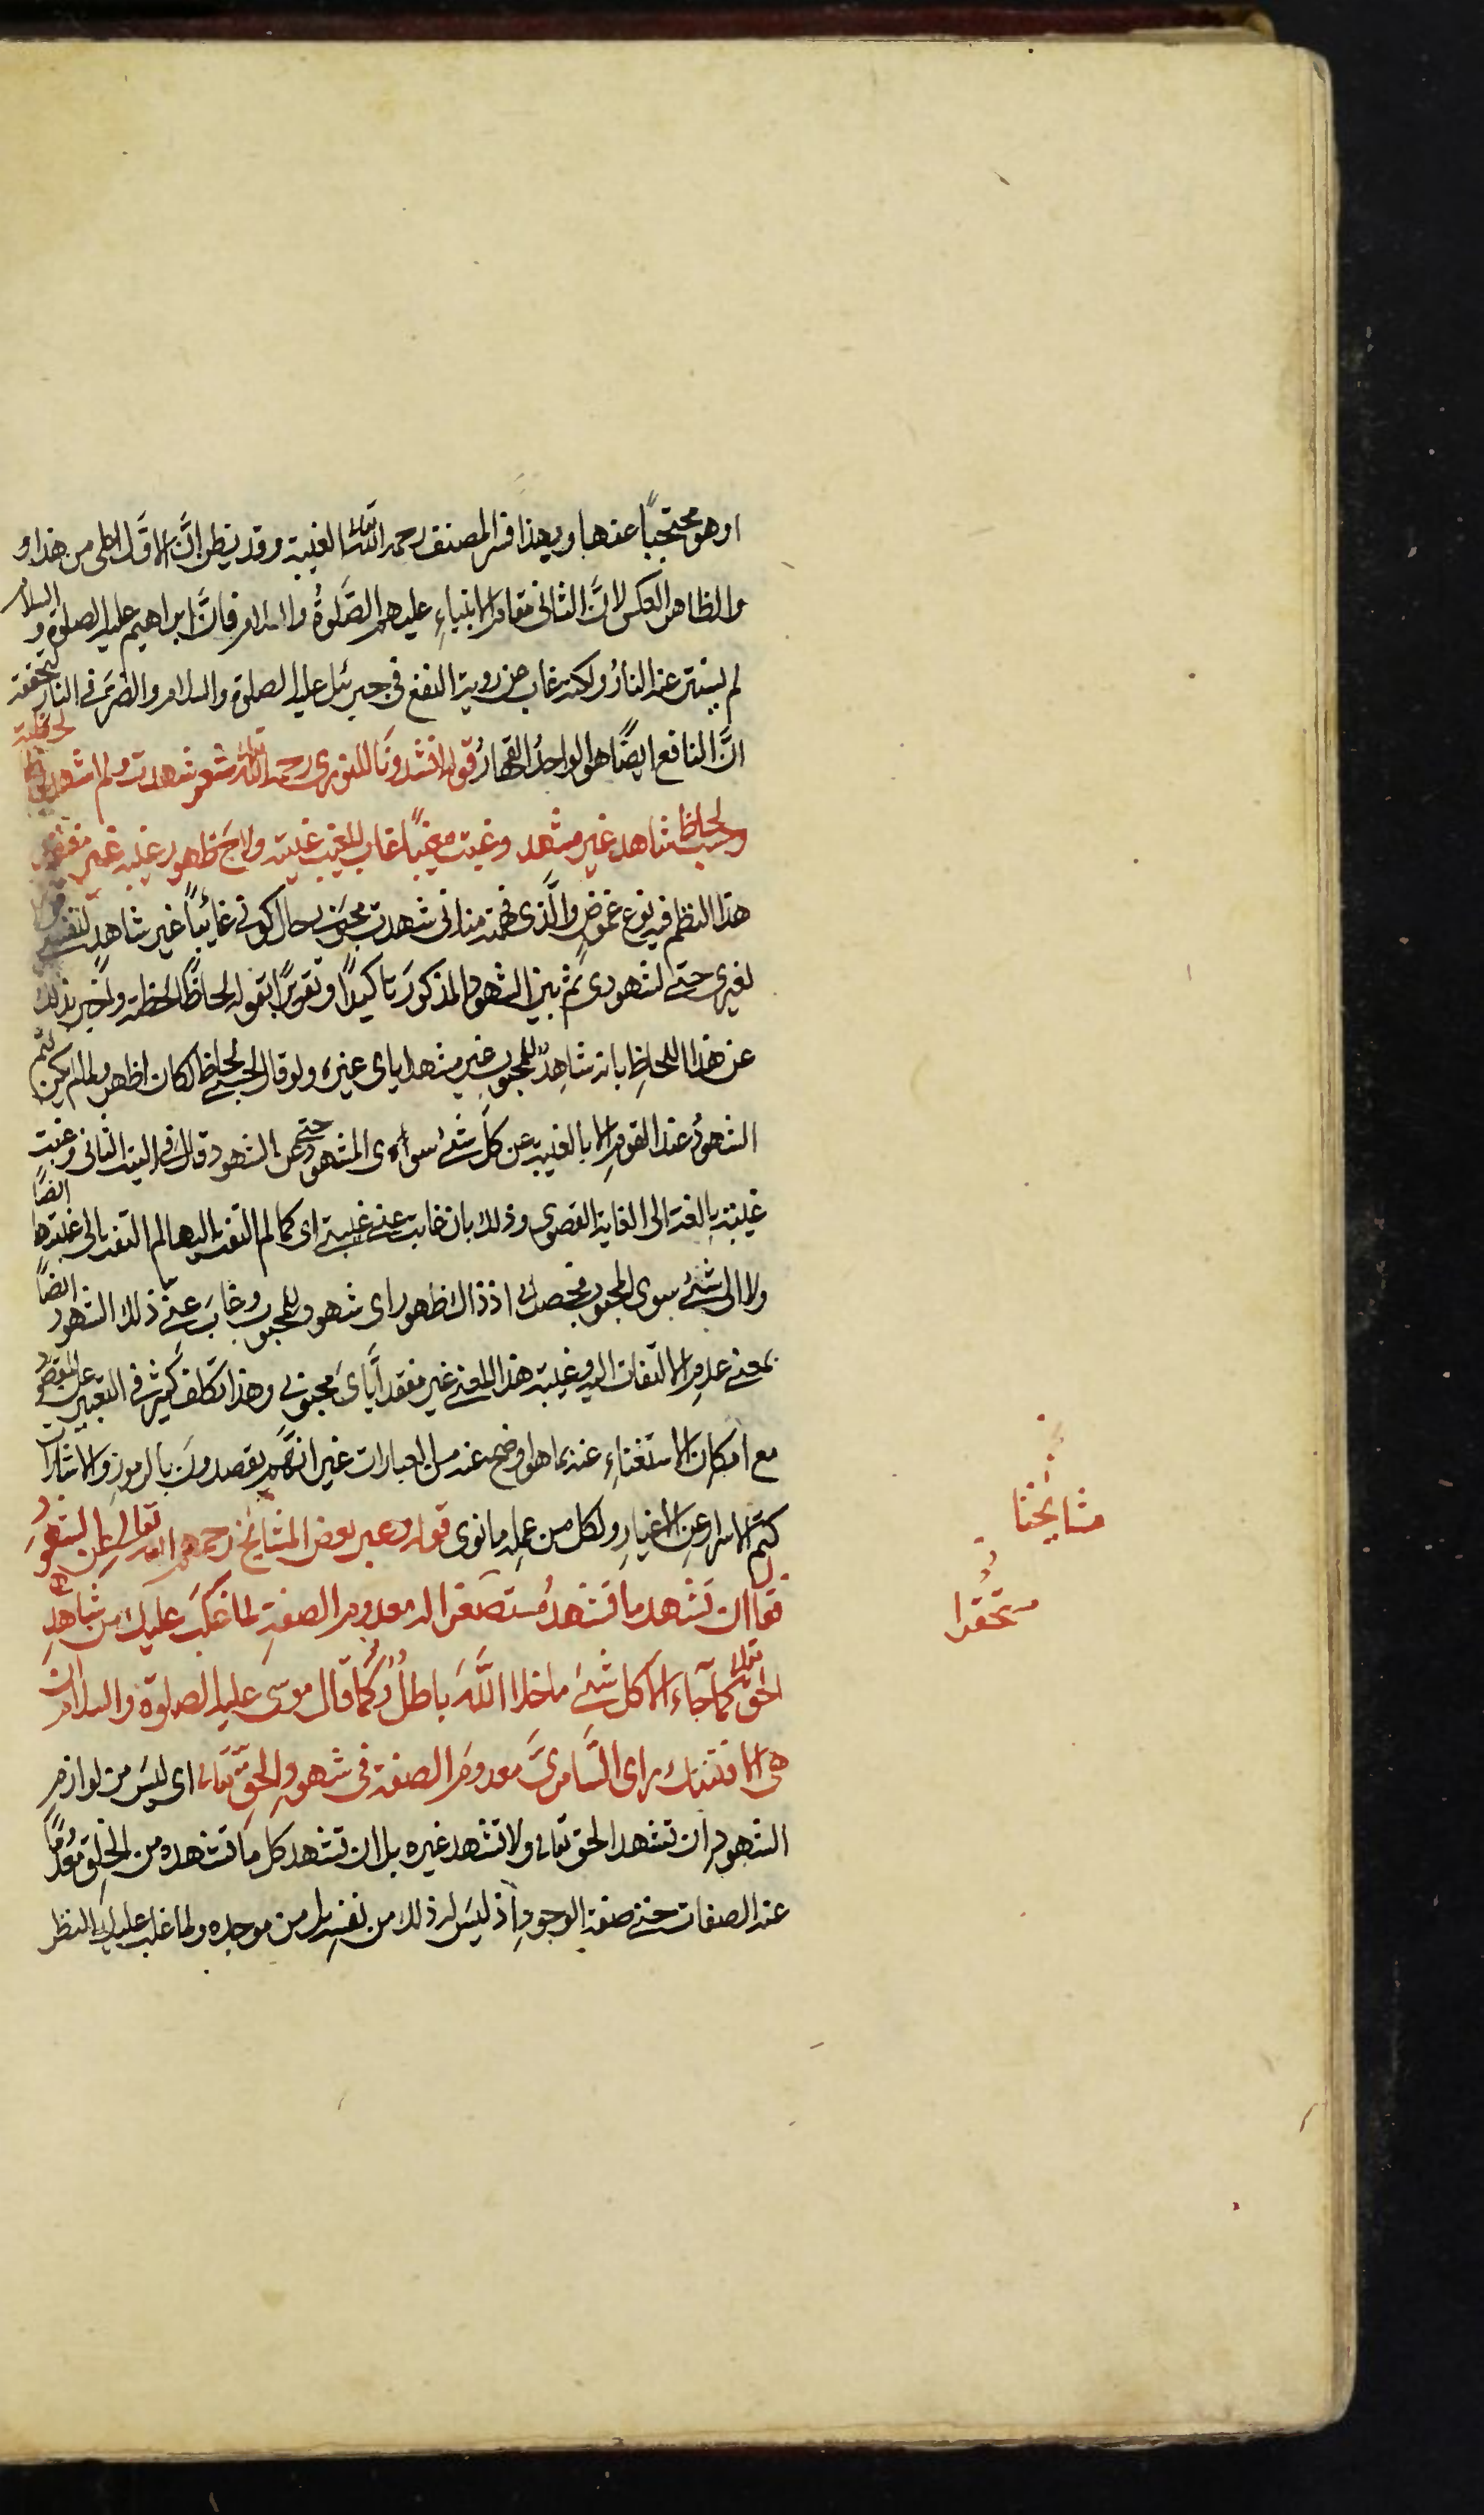 او هو محتجبًا عنها وبهذا فسر المصنف رحمه الله تعالى الغيبة وقد يظن انّ الاوّل اعلى من هذا و
والظاهر العكس لانّ الثانى مقام الانبياءِ عليهم الصَّلوةُ والسلام فانَّ ابراهيم عليه الصلوة والسلام
لم يستتر عنه النارُ ولكنه غاب عن روية النفع فى جبرئيل عليه الصلوة والسلام والضرّ فى النار لتحققه
انَّ النافع ايضًا هو الواحدُ القهارُ قوله انشدونَا للنورى رحمه الله تعالى شعر شهدت ولم اشهد لحاظًا لحظته
وحسب لحاظ شاهد غير مشهد وغبت مغيبًا غاب للغيب غيبه ولاحَ ظهور غيبه غير مفقد
هذا النظم فيه نوع غموضٍ والَّذى فهمته منه انى شهدت محبوبى حال كونى غائبًا غير شاهدٍ لنفسى
لغيرى حتى لشهودى ثم بيّن الشهود المذكورَ تاكيدًا وتقويرًا بقوله لحاظًا لحظته واخبر بذلك
عن هذا اللحاظِ بانه شاهِدٌ للمحبوبِ غير مشهد اياى غيره ولو قال لحسبى لحاظ لكان اظهر ولما لم يكن يتم
الشهودُ عند القومِ الا بالغيبة عن كلّ شئ سوى المشهود حتى عن الشهود قال فى البيت الثانى وغبت
غيبةً بالغة الى الغاية القصوى وذلك بان غابت عنى غيبتى اى كما لم التفت اليها لم التفت الى غيبتها ايضًا
ولا الى شئ سوى المحبوب فحصل لى اذ ذاك ظهور اى شهود للمحبوب وغابَ عنى ذلك الشهود ايضًا
بمعنى عدم الالتفات اليه وغيبة هذا المعنى غير مفقد اَيَّاىَ محبوبى وهذا تكلف كثير فى التعبير عن المقصود
مع امكان الاستغناءِ عنه بما هو اوضح عنه من العبارات غير انهم يقصدونَ بالرموز والاشارات
كتم الاسرار عن الاغيارِ ولكل من عمله ما نوى قوله وعبر بعض المشائخ رحمهم الله تعالى عن الشهود
فقال ان تشهد ما تشهدُ مُستصغرا له معدوم الصفةِ لما غلَبَ عليك من شاهدِ
الحق تعالى كما جَاء الا كل شئ ما خلا اللَّهَ باطلُ وكما قال موسى عليه الصلوة والسلام ان
هى الا فتنتك راى السَّامرىَّ معدومَ الصفة فى شهود الحقّ تعالى اى ليسَ من لوازمِ
الشهود ان تشهد الحق تعالى ولا تشهد غيره بل ان تشهد كل ما تشهده من الخلق معدُومًا
عنه الصفات حتى صفة الوجودِ اذ ليسَ له ذلك من نفسِه بل من موجده ولما غلب عليك النظر
مشايخنا
مستحقرا